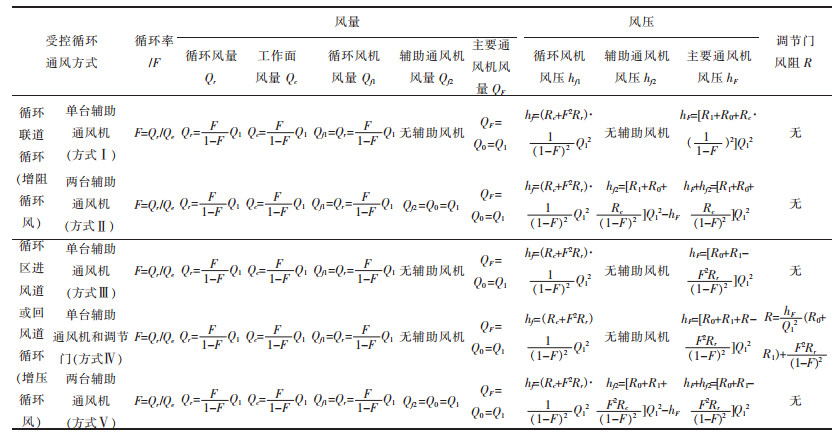 受控循环通风方式 循环率/F 风量 风压 调节门风阻 R
循环风量 Qr 工作面风量 Qc 循环风机风量 Qf1 辅助通风机风量 Qf2 主要通风机风量 QF 循环风机风压 hf1 辅助通风机风压 hf2 主要通风机风压 hF
循环联道循环(增阻循环风)
单台辅助通风机(方式Ⅰ) F=Qr/Qc Qr=F/(1-F) Q1 Qc=F/(1-F) Q1 Qf1=Qr=F/(1-F) Q1 无辅助风机 QF=Q0=Q1 hf=(Rc+F²Rr)·1/(1-F)² Q1² 无辅助风机 hF=[R1+R0+Rc·(1/(1-F))²]Q1² 无
两台辅助通风机(方式Ⅱ) F=Qr/Qc Qr=F/(1-F) Q1 Qc=F/(1-F) Q1 Qf1=Qr=F/(1-F) Q1 Qf2=Q0=Q1 QF=Q0=Q1 hf=(Rc+F²Rr)·1/(1-F)² Q1² hf2=[R1+R0+Rc/(1-F)²]Q1²-hF hF+hf2=[R1+R0+Rc/(1-F)²]Q1² 无
循环区进风道或回风道循环(增压循环风)
单台辅助通风机(方式Ⅲ) F=Qr/Qc Qr=F/(1-F) Q1 Qc=F/(1-F) Q1 Qf1=Qr=F/(1-F) Q1 无辅助风机 QF=Q0=Q1 hf=(Rc+F²Rr)·1/(1-F)² Q1² 无辅助风机 hF=[R0+R1-F²Rr/(1-F)²]Q1² 无
单台辅助通风机和调节门(方式Ⅳ) F=Qr/Qc Qr=F/(1-F) Q1 Qc=F/(1-F) Q1 Qf1=Qr=F/(1-F) Q1 无辅助风机 QF=Q0=Q1 hf=(Rc+F²Rr) 1/(1-F)² Q1² 无辅助风机 hF=[R0+R1+R-F²Rr/(1-F)²]Q1² R=hF/Q1²(R0+R1)+F²Rr/(1-F)²
两台辅助通风机(方式Ⅴ) F=Qr/Qc Qr=F/(1-F) Q1 Qc=F/(1-F) Q1 Qf1=Qr=F/(1-F) Q1 Qf2=Q0=Q1 QF=Q0=Q1 hf=(Rc+F²Rr)·1/(1-F)² Q1² hf2=[R0+R1+F²Rc/(1-F)²]Q1²-hF hF+hf2=[R0+R1-F²Rr/(1-F)²]Q1² 无